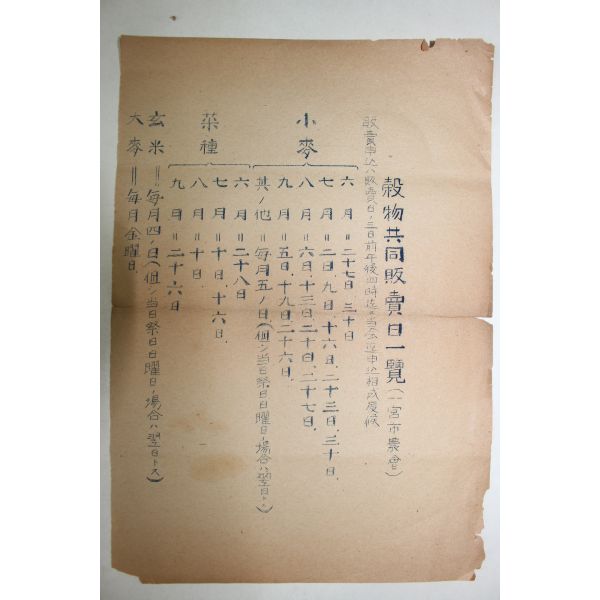 穀物共同販賣日一覽(一宮市農會)
販賣申込ハ販賣日ノ三日前午後四時迄ニ當會ニ申込相成度候
小麥
六月=二十七日、三十日
七月=二日、九日、十六日、二十三日、三十日、
八月=六日、十三日、二十日、二十七日、
九月=五日、十九日、二十六日、
其ノ他=每月五ノ日(但シ当日祭日日曜日ノ場合ハ翌日トス)
菜種
六月=二十八日
七月=十日、十六日、
八月=十日、
九月=二十六日
玄米=每月四ノ日(但シ当日祭日日曜日ノ場合ハ翌日トス)
大麥=每月金曜日